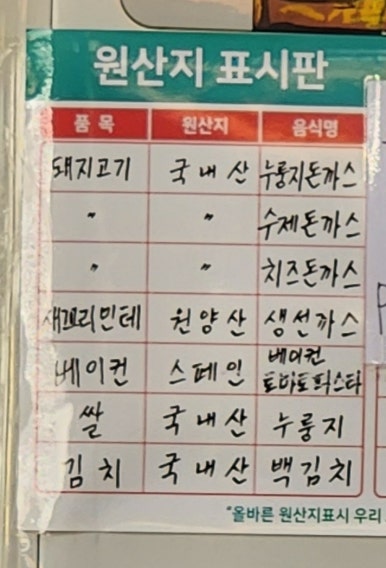 원산지 표시판
품 목 원산지 음식명
돼지고기 국내산 누룽지돈까스
〃 〃 수제돈까스
〃 〃 치즈돈까스
새꼬리민테 원양산 생선까스
베이컨 스페인 베이컨
토마토파스타
쌀 국내산 누룽지
김치 국내산 백김치
"올바른 원산지표시 우리